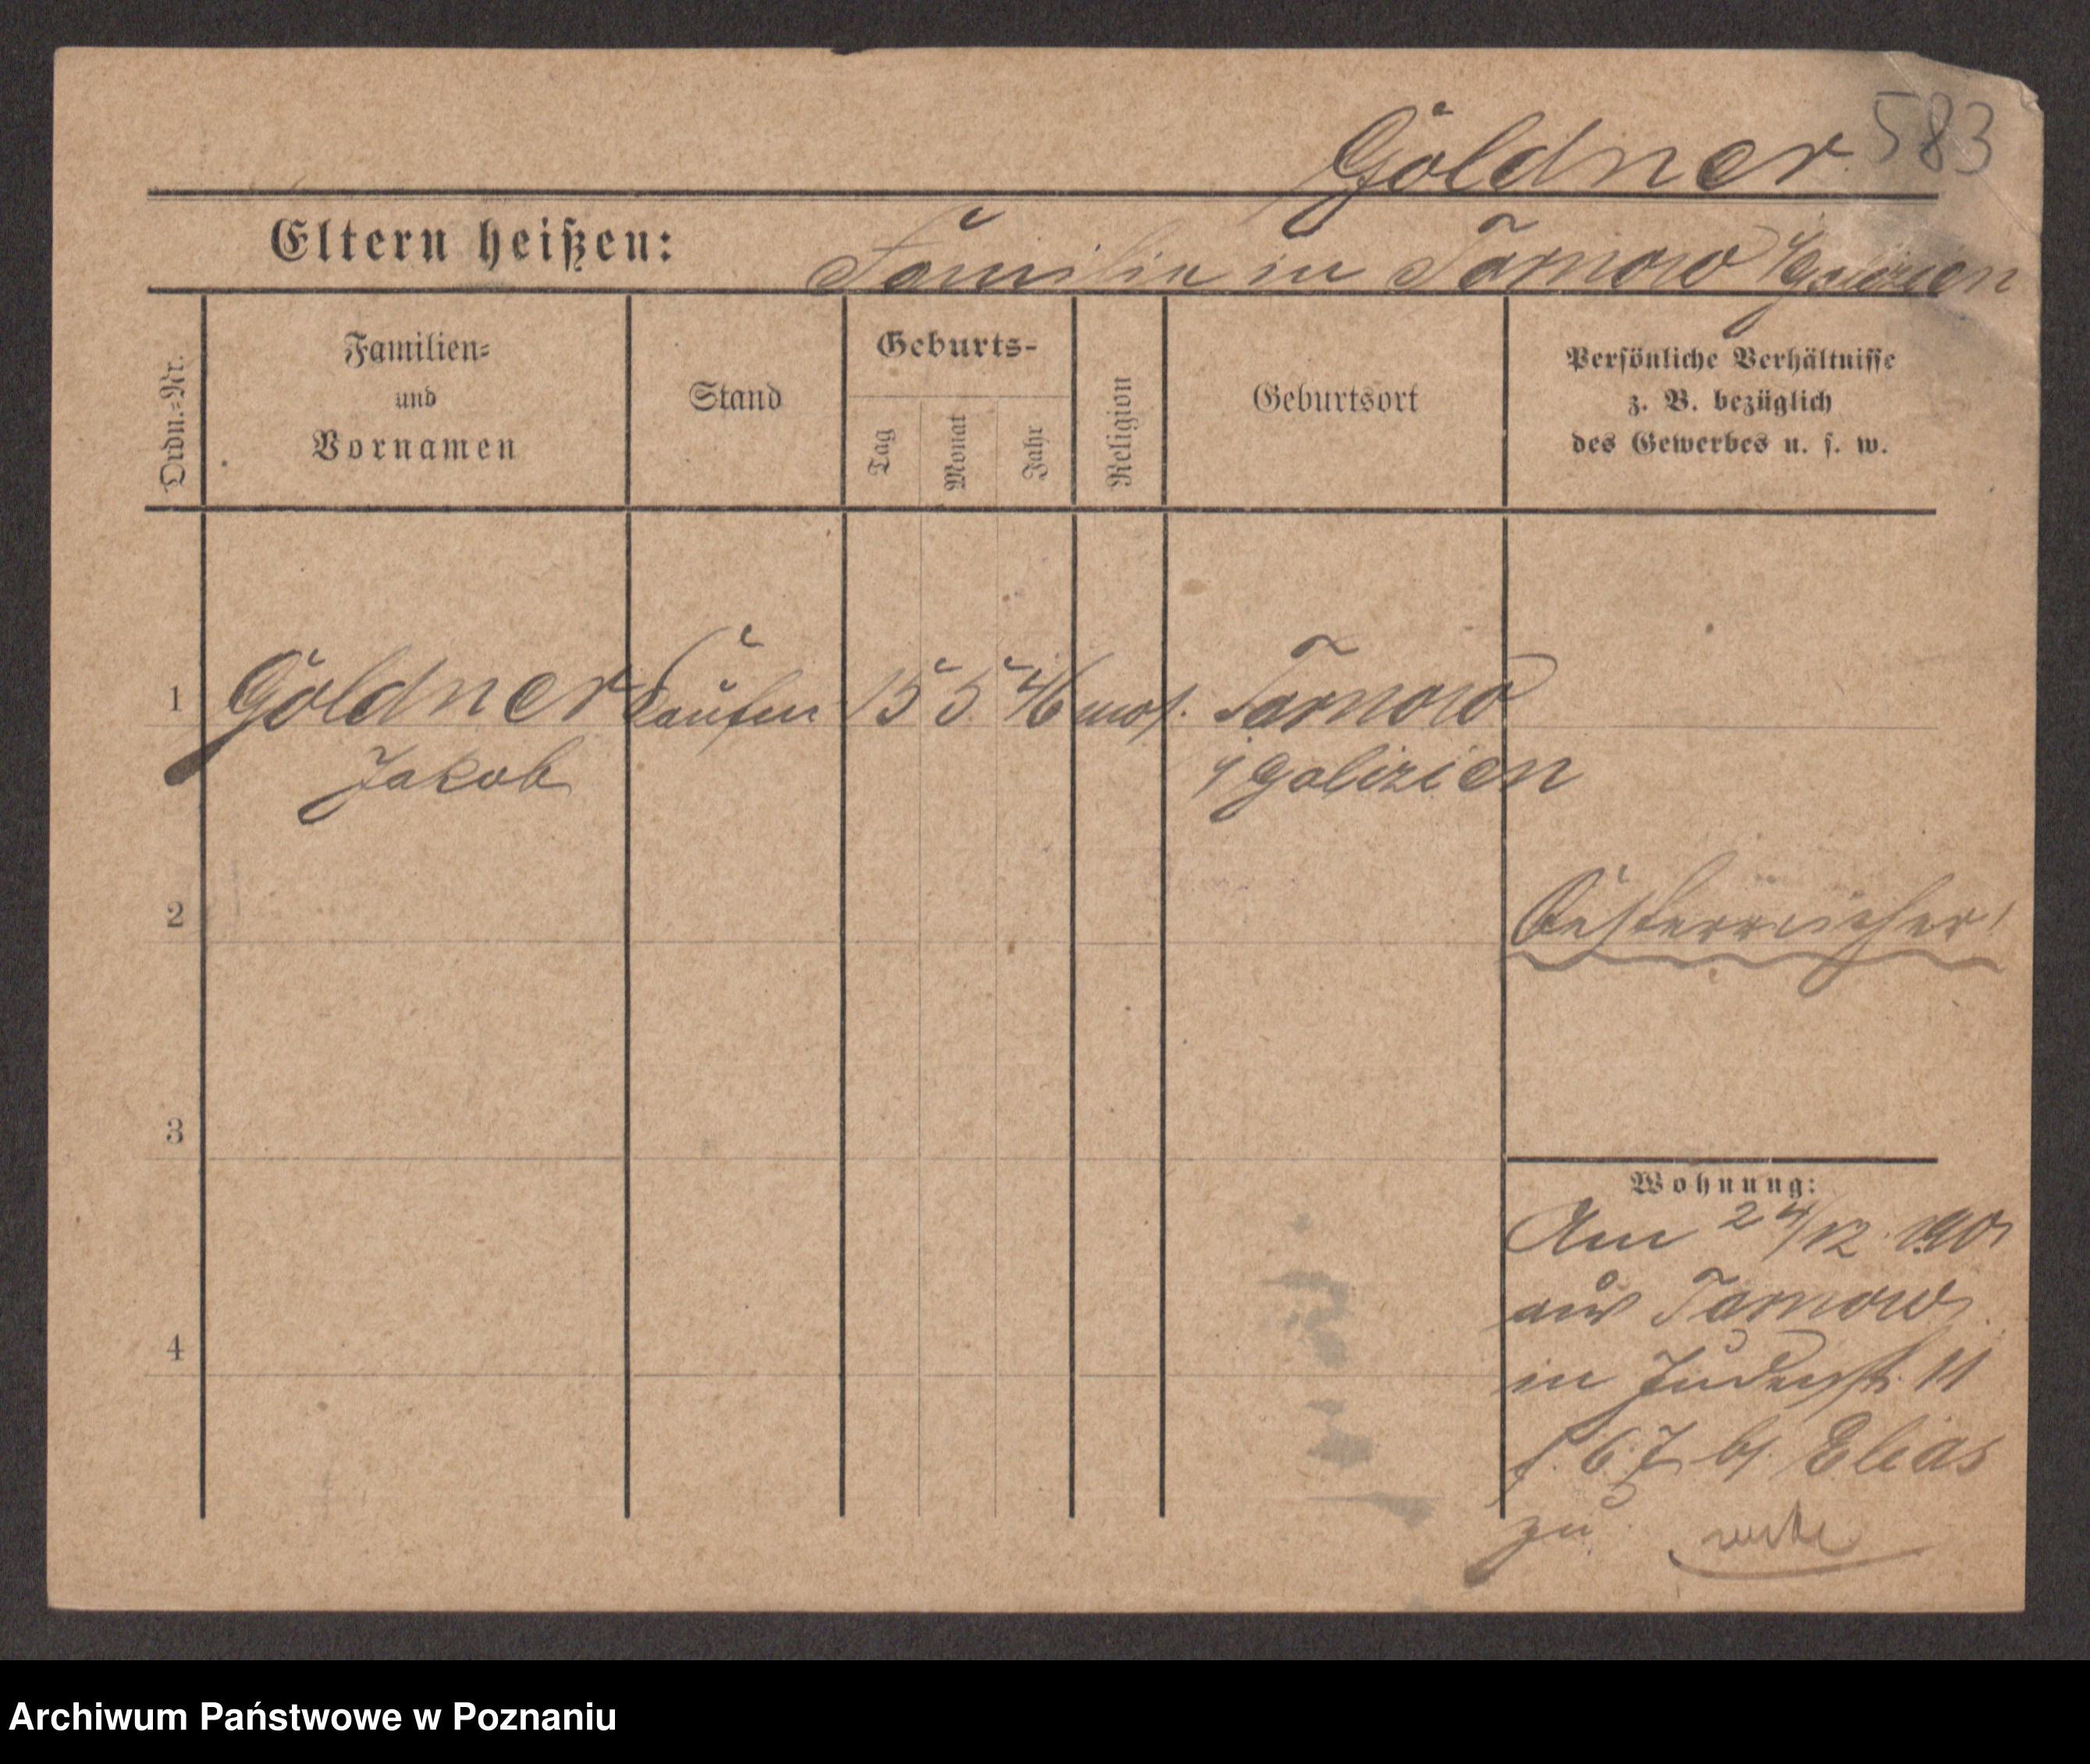 583
Goldner
Eltern heißen: Familie in Tarnow i/Galizien
Ordn.=Nr.
Familien=
und
Vornamen
Stand
Geburts-
Tag
Monat
Jahr
Religion
Geburtsort
Persönliche Verhältnisse
z. B. bezüglich
des Gewerbes u. s. w.
1 Goldner Kaufm 15 5 46 mos. Tarnow
Jakob i/Galizien
2 Oesterreicher!
3
Wohnung:
Am 24/12 1901
aus Tarnow
4
in Judenstr. 11
b/ Elias
zu
Archiwum Państwowe w Poznaniu